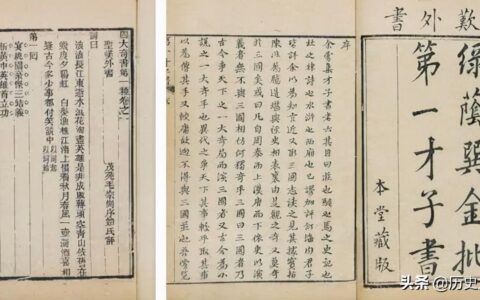 歎外書
金批
第一才子書
本堂藏版
序
余嘗集才子書者六其目曰莊也騷也馬之史記也
杜之律詩也水滸也西廂也已謬加評訂海內君子
皆許余以為知言近又取三國志讀之見其據實指
陳非屬臆造堪與經史相表裏由是觀之奇又莫奇
於三國矣或曰凡自周秦而上漢唐而下依史以演
義者無不與三國相仿何獨奇乎三國曰三國者乃
古今爭天下之一大奇局而演三國者又古今為小
說之一大奇手也異代之爭天下其事較平取其事
以為傳其手又較庸故迥不得與三國並也吾嘗覽
四大奇書第一種卷之一
聖歎外書
茂苑毛宗崗序始氏評
詞曰
滾滾長江東逝水浪花淘盡英雄是非成敗轉頭空青山依舊在
幾度夕陽紅 白髮漁樵江渚上慣看秋月春風一壺濁酒喜相
逢古今多少事都付笑談中
第一回
宴桃園豪傑三結義
斬黃巾英雄首立功
头条 @历史